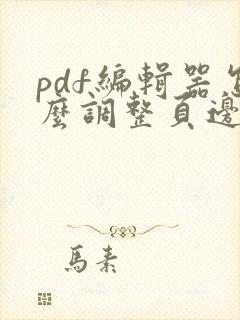 pdf編輯器怎
麼調整頁邊
馬素